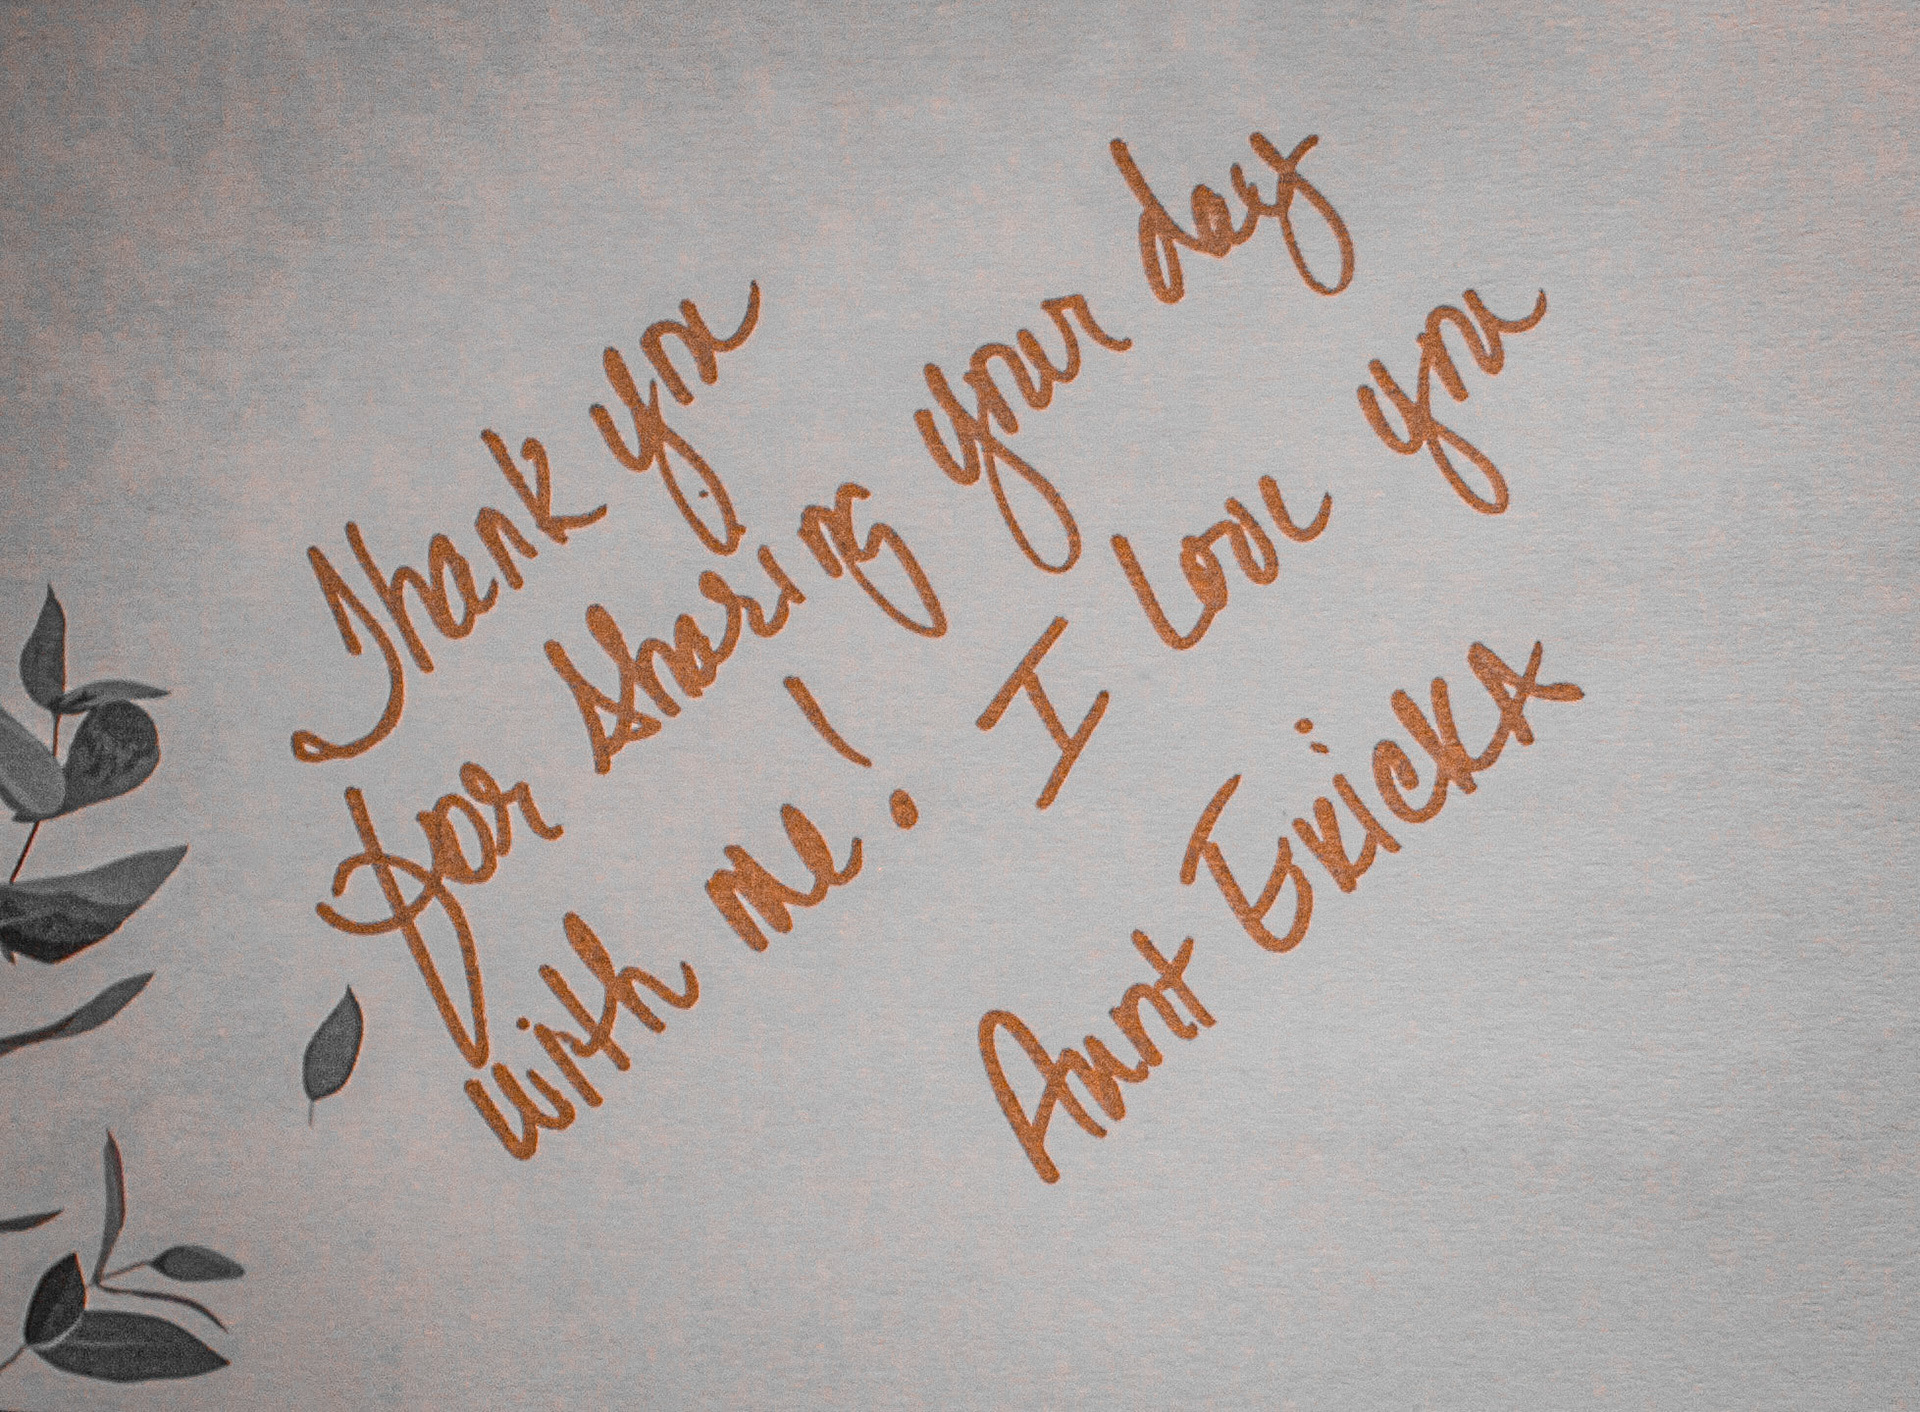 Thank you
for sharing your day
with me! I love you
Aunt Ericka